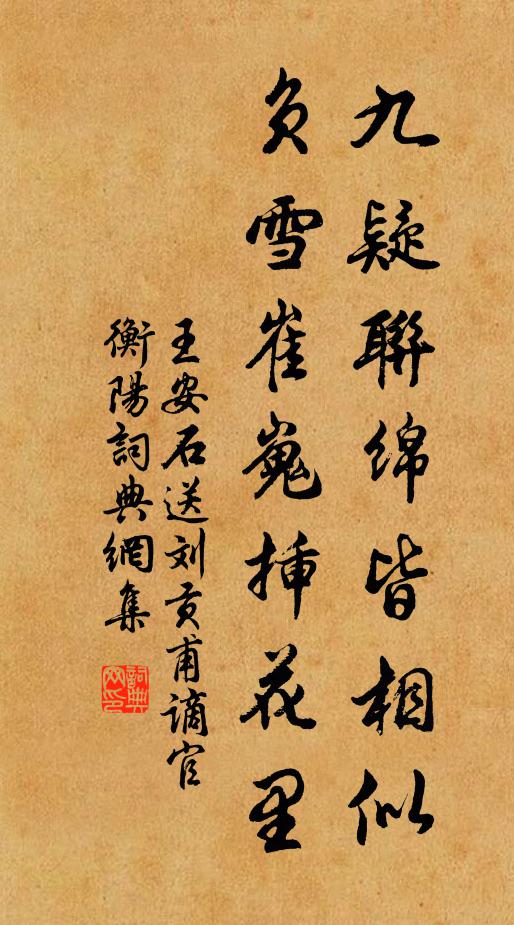 九疑聯绵皆相似
负雪崔嵬插花里
王安石送刘贡甫谪官
衡陽詞典網集
詞典网印